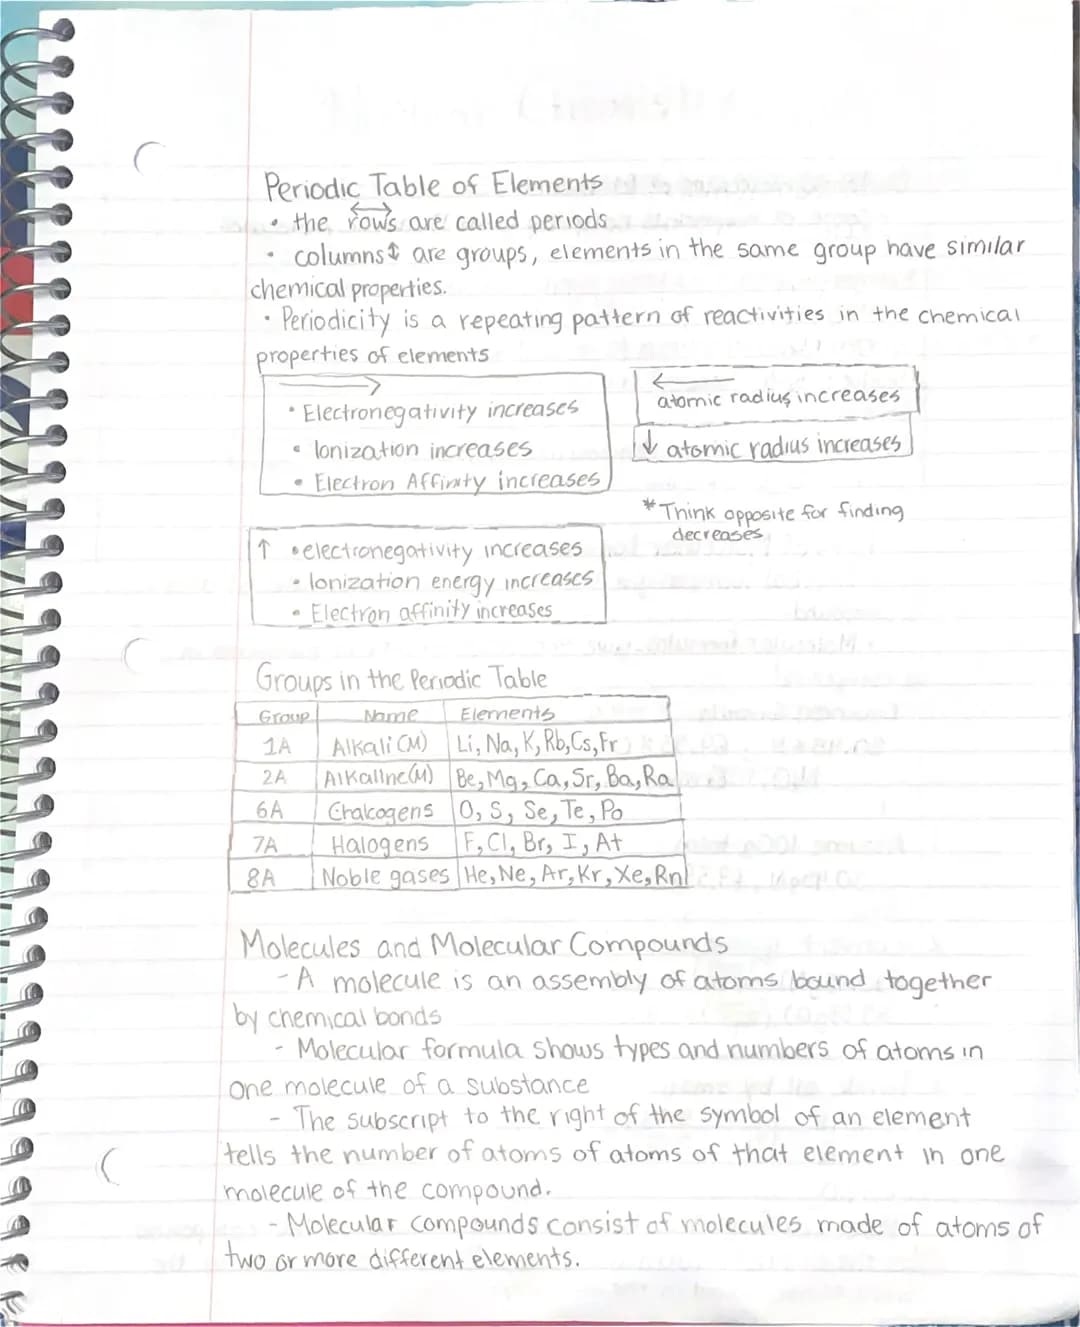 Periodic Table of Elements
• the rows are called periods
• columns↕ are groups, elements in the same group have similar
chemical properties.
• Periodicity is a repeating pattern of reactivities in the chemical
properties of elements
→
• Electronegativity increases
• Ionization increases
• Electron Affinity increases
←
atomic radius increases
↓ atomic radius increases
* Think opposite for finding
decreases
↑ • electronegativity increases
• Ionization energy increases
• Electron affinity increases
Groups in the Periodic Table
Group Name Elements
1A Alkali (M) Li, Na, K, Rb, Cs, Fr
2A Alkaline (M) Be, Mg, Ca, Sr, Ba, Ra
6A Chalcogens O, S, Se, Te, Po
7A Halogens F, Cl, Br, I, At
8A Noble gases He, Ne, Ar, Kr, Xe, Rn
Molecules and Molecular Compounds
- A molecule is an assembly of atoms bound together
by chemical bonds
- Molecular formula shows types and numbers of atoms in
one molecule of a substance
- The subscript to the right of the symbol of an element
tells the number of atoms of atoms of that element in one
molecule of the compound.
- Molecular compounds consist of molecules made of atoms of
two or more different elements.